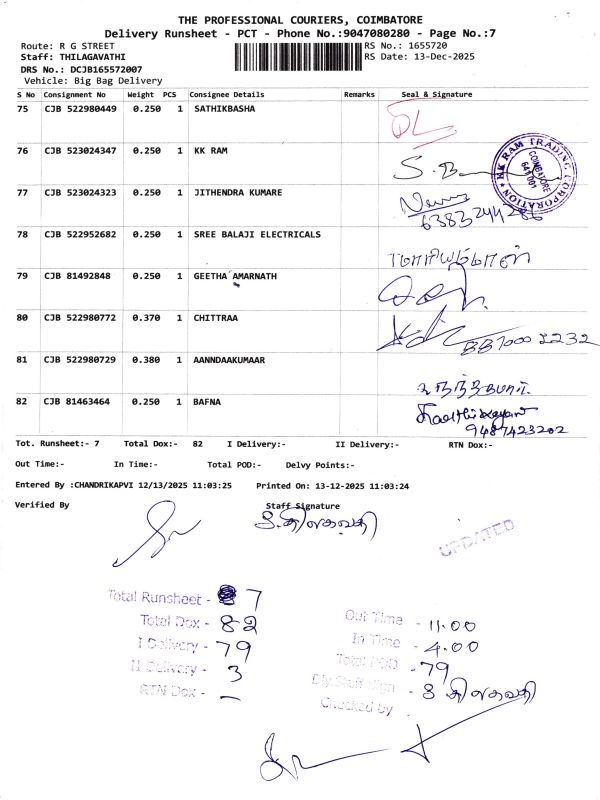 THE PROFESSIONAL COURIERS, COIMBATORE
Delivery Runsheet - PCT - Phone No.:9047080280 - Page No.:7
Route: R G STREET RS No.: 1655720
Staff: THILAGAVATHI RS Date: 13-Dec-2025
DRS No.: DCJB165572007
Vehicle: Big Bag Delivery
S No Consignment No Weight PCS Consignee Details Remarks Seal & Signature
75 CJB 522980449 0.250 1 SATHIKBASHA
76 CJB 523024347 0.250 1 KK RAM
KK RAM TRADING CORPORATION
COIMBATORE
641 001
77 CJB 523024323 0.250 1 JITHENDRA KUMARE
6383244286
78 CJB 522952682 0.250 1 SREE BALAJI ELECTRICALS
79 CJB 81492848 0.250 1 GEETHA AMARNATH
80 CJB 522980772 0.370 1 CHITTRAA
81 CJB 522980729 0.380 1 AANNDAAKUMAAR
82 CJB 81463464 0.250 1 BAFNA
9487423202
Tot. Runsheet:- 7 Total Dox:- 82 I Delivery:- II Delivery:- RTN Dox:-
Out Time:- In Time:- Total POD:- Delvy Points:-
Entered By :CHANDRIKAPVI 12/13/2025 11:03:25 Printed On: 13-12-2025 11:03:24
Verified By Staff Signature
திலகவதி
UPDATED
Total Runsheet - 7
Total Dox - 82
I Delivery - 79
II Delivery - 3
RTN Dox - –
Out Time - 11.00
In Time - 4.00
Total POD - 79
Dly.Staff Sign - திலகவதி
Checked by -